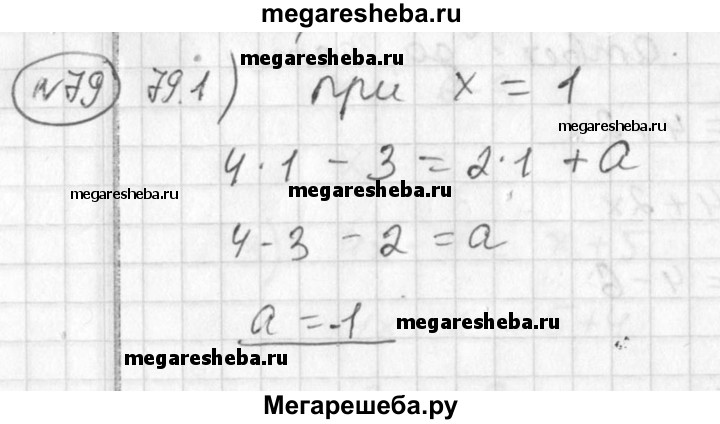 megaresheba.ru
№79 79.1) при x = 1
megaresheba.ru
megaresheba.ru
4·1 - 3 = 2·1 + a
megaresheba.ru
megaresheba.ru
4 - 3 - 2 = a
a = -1
megaresheba.ru
megaresheba.ru
Мегарешеба.ру